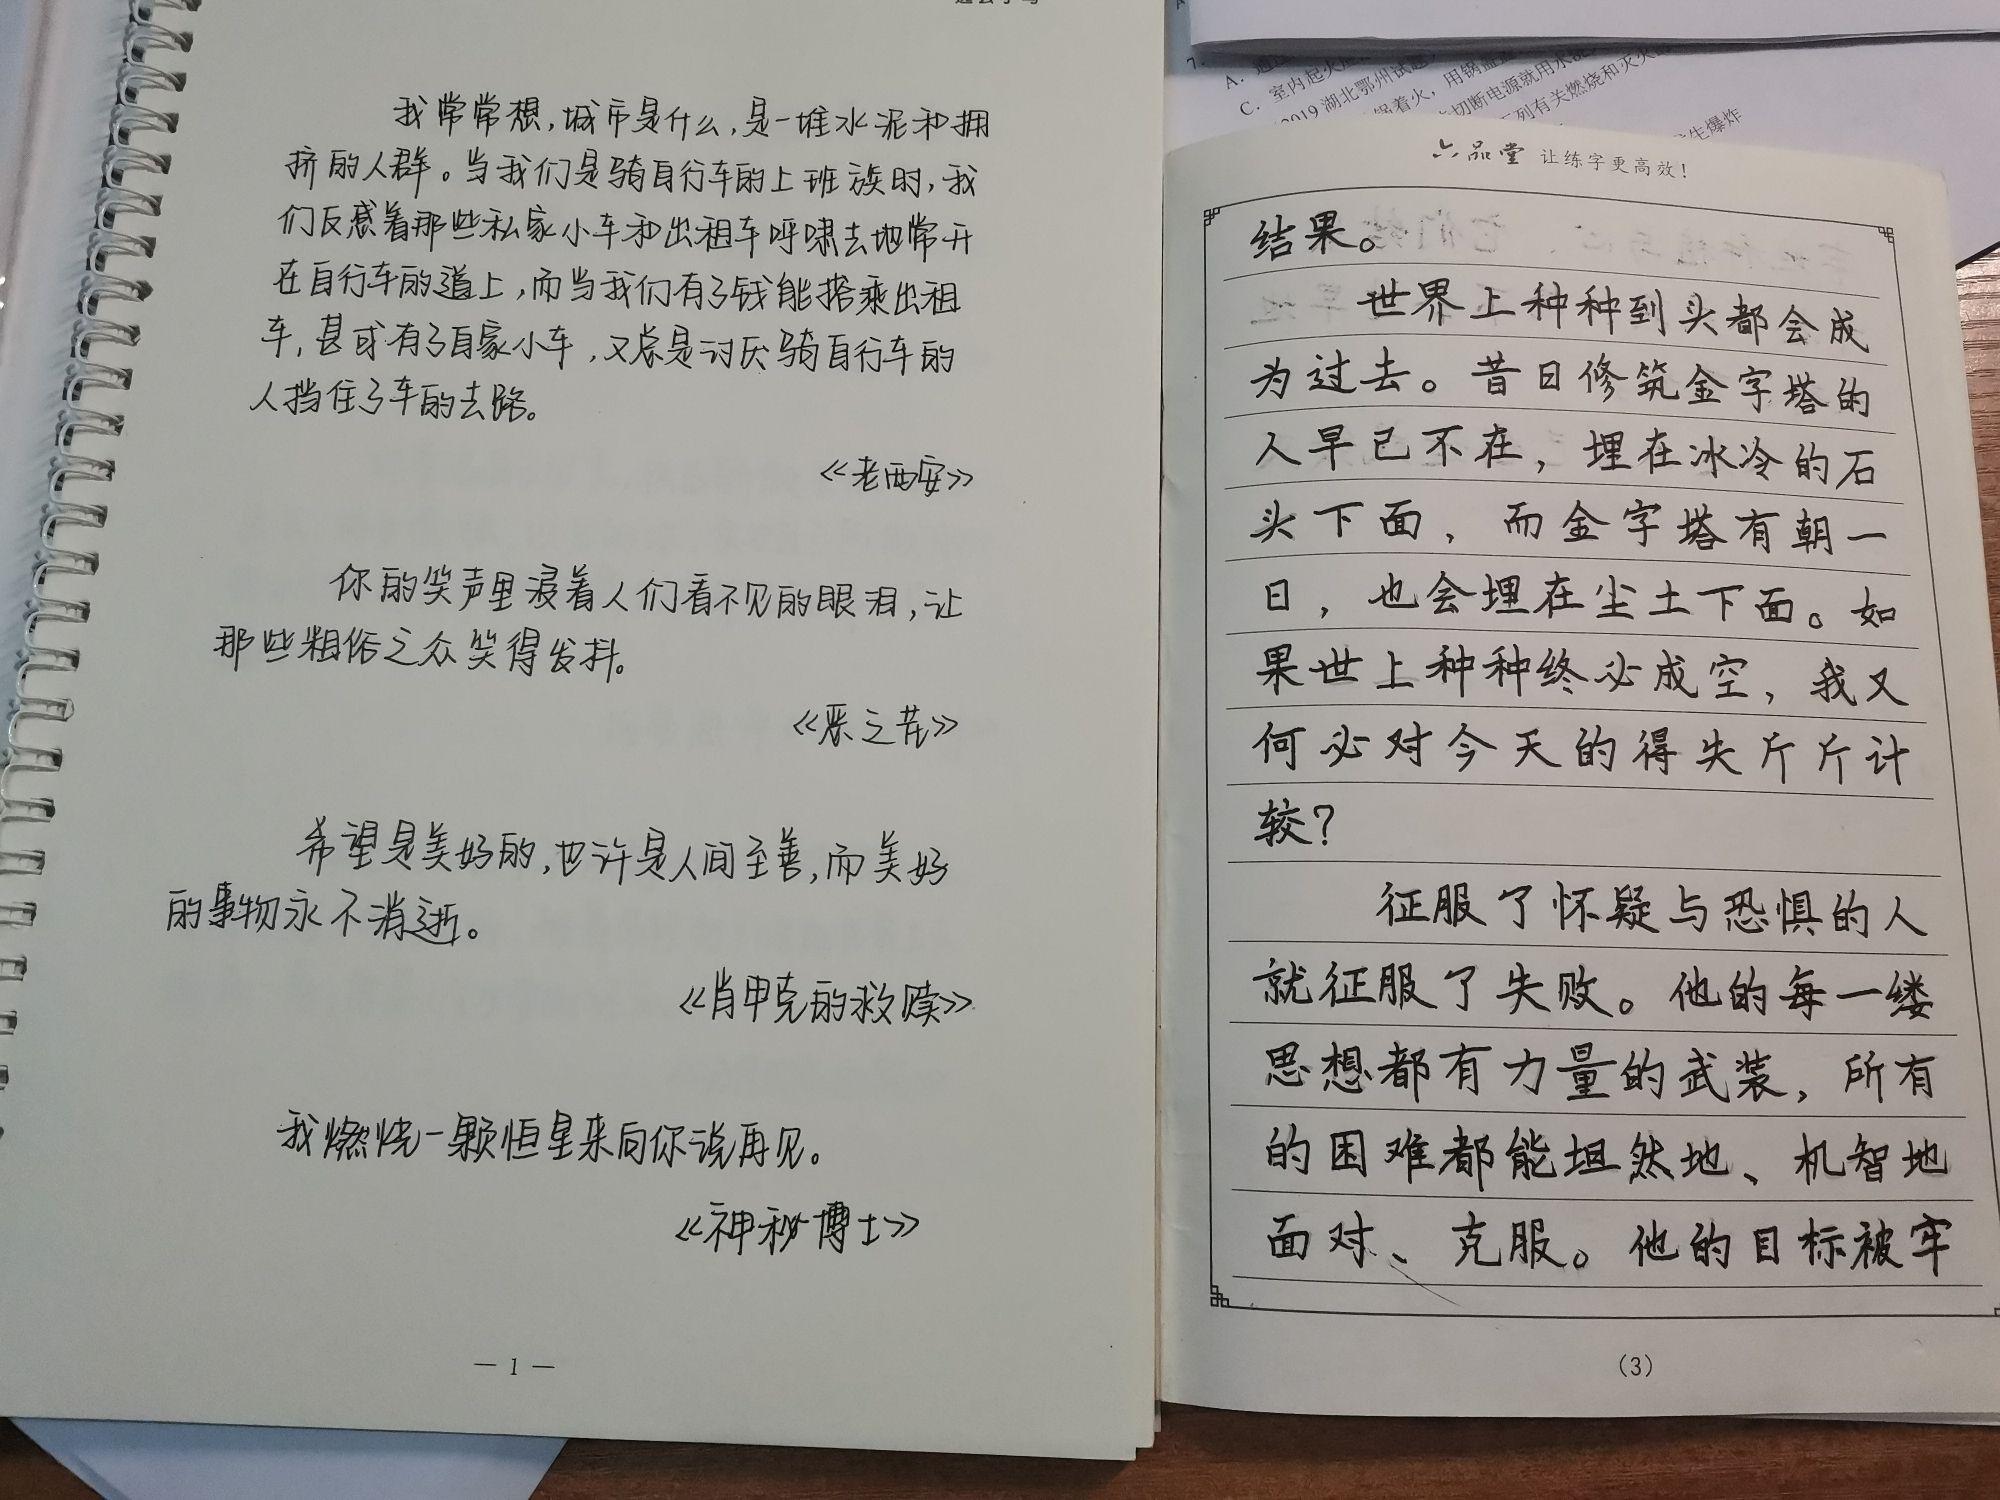 我常常想,城市是什么,是一堆水泥和拥
挤的人群。当我们是骑自行车的上班族时,我
们反感着那些私家小车和出租车呼啸去地常开
在自行车的道上,而当我们有了钱能搭乘出租
车,甚或有了自家小车,又总是讨厌骑自行车的
人挡住了车的去路。
《老西安》
你的笑声里浸着人们看不见的眼泪,让
那些粗俗之众笑得发抖。
《恶之花》
希望是美好的,也许是人间至善,而美好
的事物永不消逝。
《肖申克的救赎》
我燃烧一颗恒星来向你说再见。
《神秘博士》
— 1 —
A.
C. 室内起火
2019湖北鄂州试题
锅着火,用锅盖盖
切断电源就用水
下列有关燃烧和灭火
生爆炸
7.
六品堂 让练字更高效!
结果。
世界上种种到头都会成
为过去。昔日修筑金字塔的
人早已不在,埋在冰冷的石
头下面,而金字塔有朝一
日,也会埋在尘土下面。如
果世上种种终必成空,我又
何必对今天的得失斤斤计
较?
征服了怀疑与恐惧的人
就征服了失败。他的每一缕
思想都有力量的武装,所有
的困难都能坦然地、机智地
面对、克服。他的目标被牢
(3)